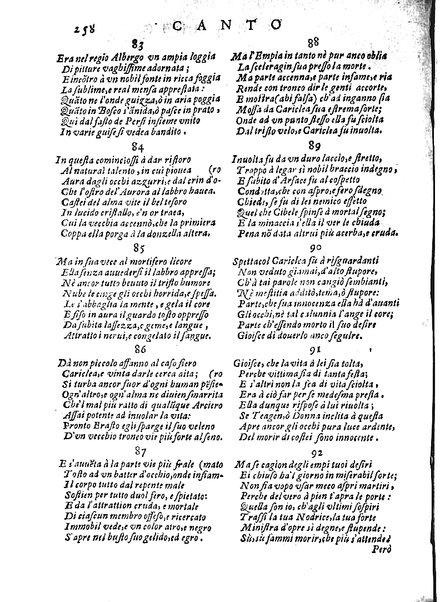 258 CANTO
83
Era nel regio Albergo vn ampia loggia
Di pitture vaghissime adornata;
Et incontro à vn nobil fonte in ricca foggia
La sublime, e real mensa apprestata:
Quāto ne l'onde guizza, ò in aria poggia
Quāto in Bosco s'ānida, ò pasce in prato,
Qui dal fasto de Persi insieme vnito
In varie guise si vedea bandito.
84
In questa cominciossi à dar ristoro
Al natural talento, in cui piouea
Aura dagli occhi azzurri, e dal crin d'o-(ro
Che l'ostro de l'Aurora al labbro hauea.
Castei del alma vite il bel tesoro
In lucido cristallo, e'n or traea,
Cui la vecchia accennò, che la primiera
Coppa ella porga à la donzella altera.
85
Ma in sua vece al mortifero licore
Ella senza auuedersi il labbro appressa;
Nè ancor tutto beuuto il tristo humore
Nube le inge gli occhi horrida, e spessa.
Le s'abbaglia la mente, e gela il core
E fiso in aura il guardo tosto oppresso
Da subita lassezza, e geme, e langue,
Attratti i nerui, e congelato il sangue.
86
Dà non piccolo affanno al caso fiero
Cariclea, e vinta darle cerca aita;
Si turba ancor fuor d'ogni human pēsie-(ro
Ogn'altro, e ogn'alma ne diuien smarrita
Ch'el mal più ratto di qualūque Arciero
Assai potente ad inuolar la vita:
Pronto Erasto egli sparge il suo veleno
D'un vecchio tronco vie più forte al seno.
87
E s'auuēta à la parte vie più frale
Tosto ad vn batter d'occhio, onde infiam-(mato
Il corpo tutto dal repente male
Sostien per tutto duol fero, e spietato:
E da l'attrattion cruda, e mortale
Di ciascun membro offeso, e ricercato
Immobil vede, e un color atro, e negro
S'apre nel busto suo gelido, ed egro.
88
Ma l'Empia in tanto nè pur anco oblia
La sceleragin sua presso la morte.
Ma parte accenna, e parte infame, e ria
Rende con tronco dir le genti accorte,
E mostra (ahi falsa) ch'ad inganno sia
Mossa da Cariclea sua estrema sorte;
Onde ad vn punto stesso ella fù sciolta
Dal tristo velo, e Cariclea fù inuolta.
89
Inuolta fù da vn duro laccio, e stretto,
Troppo à legar sì nobil braccio indegno,
E subito d'Arsace fù al cospetto
Condotta, che con aspro, e fero sdegno
Chiede, se fù di lei nemico effetto
Quel che Cibele spinse à mortal segno;
E la minaccia s'ella il ver le chiude
Pena nō data altrui più acerba, e cruda.
90
Spettacol Cariclea fù à risguardanti
Non veduto giamai, d'alto stupore,
Ch'à tai parole non cangiò sembianti,
Nè mestitia additò, tema, ò stupore:
Parte, che sua innocenza ella hà d'auanti
Gli occhi, nè tal calunnia l'ange il core;
Parte, che s'essendo morto il suo desire
Gioisce di douerlo anco seguire.
91
Gioisce, che la vita à lei sia tolta,
Perche vittima sia di santa festa;
E s'altri non la fea di vita sciolta,
Era già forse per se medesma presta.
Ella dunque rispose à lui riuolta;
Se Teagen, ò Donna ingiusta in questa
Aure ancor gli occhi apre pura luce ardente,
Del morir di costei sono innocente.
92
Ma se cagion degli empi tuoi desiri
Ei chiuso hà'l giorno in miserabil forte;
Non sia vopo vsar meco aspri martiri,
Perche del vero à pien t'apra le porte:
Quella son io, ch'agli vltimi sospiri
Trassi la tua Nodrice, la tua forte
Ministra d'opre sì degne, e stupende:
Sù, sù fammi morir, che più s'attende?
Però